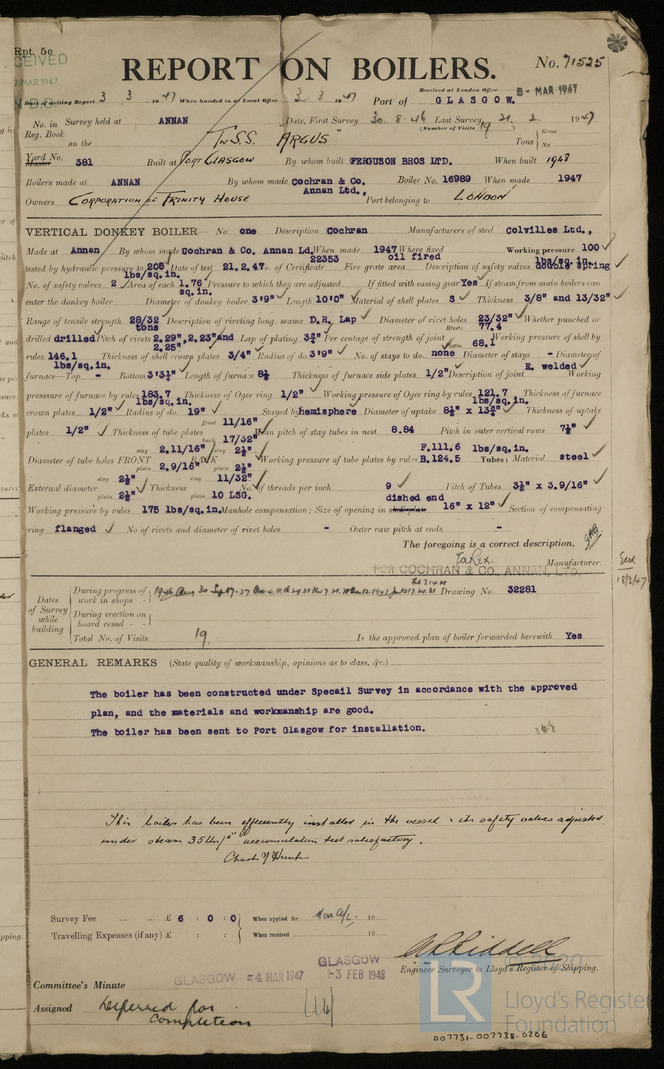 Rpt. 5c
REPORT ON BOILERS.
No. 71525
Date of writing Report 3 3 1947 When handed in at Local Office 3 3 1947 Port of GLASGOW.
Received at London Office 5 - MAR 1947
No. in Survey held at ANNAN Date, First Survey 30. 8. 46 Last Survey 21. 2. 1947
Reg. Book (Number of Visits 19)
on the T.W.S.S. "ARGUS" Tons { Gross Net
Yard No. 381 Built at PORT GLASGOW By whom built FERGUSON BROS LTD. When built 1948
Boilers made at ANNAN By whom made Cochran & Co. Annan Ltd., Boiler No. 16989 When made 1947
Owners CORPORATION OF TRINITY HOUSE Port belonging to LONDON
VERTICAL DONKEY BOILER— No. one Description Cochran Manufacturers of steel Colvilles Ltd.,
Made at Annan By whom made Cochran & Co. Annan Ld. When made 1947 Where fixed Working pressure 100 lbs/sq.in.
tested by hydraulic pressure to 200 lbs/sq.in. Date of test 21.2.47. No. of Certificate 22353 Fire grate area oil fired Description of safety valves double spring
No. of safety valves 2 Area of each 1.76 sq.in. Pressure to which they are adjusted If fitted with easing gear Yes If steam from main boilers can
enter the donkey boiler Diameter of donkey boiler 3'9" Length 10'0" Material of shell plates S Thickness 3/8" and 13/32"
Range of tensile strength 28/32 tons Description of riveting long. seams D.R. Lap Diameter of rivet holes 23/32" Whether punched or
drilled drilled Pitch of rivets 2.29", 2.23" and 2.25" Lap of plating Per centage of strength of joint Rivets 77.4 Plates 68.1 Working pressure of shell by
rules 146.1 lbs/sq.in. Thickness of shell crown plates 3/4" Radius of do 3'9" No. of stays to do. none Diameter of stays - Diameter of
furnace—Top - Bottom Length of furnace Thickness of furnace side plates 1/2" Description of joint E. welded Working
pressure of furnace by rules 183.7 lbs/sq.in. Thickness of Ogee ring 1/2" Working pressure of Ogee ring by rules 121.7 lbs/sq.in. Thickness of furnace
crown plates 1/2" Radius of do. 19" Stayed by hemisphere Diameter of uptake Thickness of uptake
plates 1/2" Thickness of tube plates front 11/16" back 17/32" Mean pitch of stay tubes in nest 8.84 Pitch in outer vertical rows
Diameter of tube holes FRONT stay 2.11/16" plain 2.9/16" BACK stay plain Working pressure of tube plates by rules F.111.6 B.124.5 lbs/sq.in. Tubes: Material steel
External diameter stay plain Thickness 11/32" 10 LSG. No. of threads per inch 9 Pitch of Tubes 3½" x 3.9/16"
Working pressure by rules 175 lbs/sq.in. Manhole compensation: Size of opening in shell plate dished end 16" x 12" Section of compensating
ring flanged No of rivets and diameter of rivet holes - Outer raw pitch at ends -
The foregoing is a correct description,
FOR COCHRAN & CO., ANNAN, LTD. Manufacturer
Dates of Survey while building
During progress of work in shops - - Drawing No. 32281
During erection on board vessel - -
Total No. of Visits 19. Is the approved plan of boiler forwarded herewith Yes
GENERAL REMARKS (State quality of workmanship, opinions as to class, &c.)
The boiler has been constructed under Specail Survey in accordance with the approved
plan, and the materials and workmanship are good.
The boiler has been sent to Port Glasgow for installation.
This boiler has been efficiently installed in the vessel & its safety valves adjusted
under steam accumulation test satisfactory.
Survey Fee ... ... £ 6 : 0 : 0 When applied for 19
Travelling Expenses (if any) £ : : When received 19
Engineer Surveyor to Lloyd's Register of Shipping.
GLASGOW -4 MAR 1947
GLASGOW -3 FEB 1948
Committee's Minute
Assigned Deferred for
Completion
LR
Lloyd's Register
Foundation
007731-007738-0206